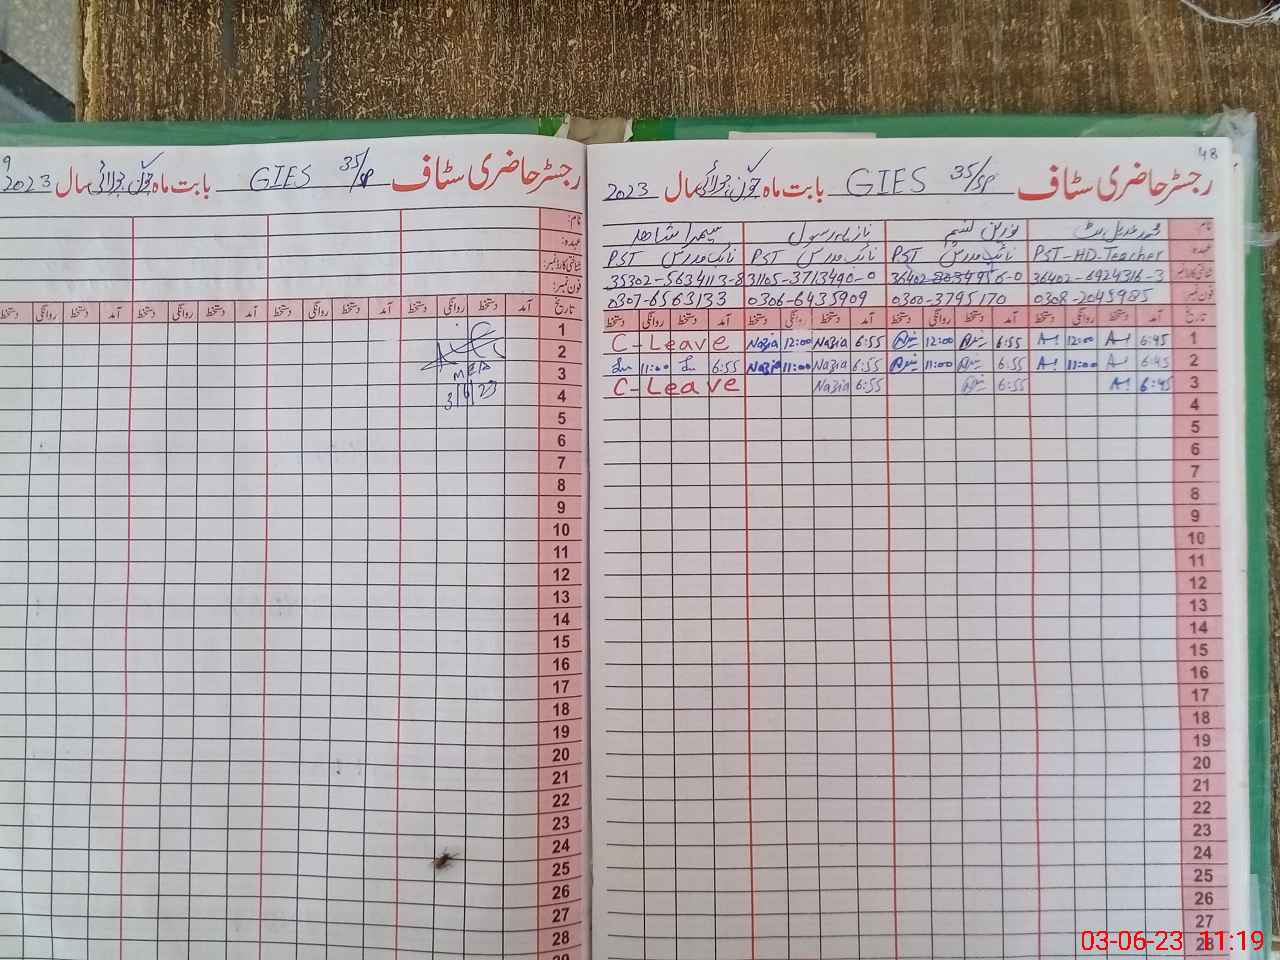 48
رجسٹر حاضری سٹاف GIES 35/SP بابت ماہ جون، جولائی سال 2023
نام: نورین نسیم نازیہ رسول سیمرا شاھد
عہدہ: PST-HD-Teacher نائب مدرس PST نائب مدرس PST نائب مدرس PST
شناختی کارڈ نمبر: 36402-6924316-3 31105-3713490-0 35302-5634113-8
فون نمبر: 0308-2045985 0300-3795170 0306-6435909 0307-6563133
تاریخ آمد دستخط روانگی دستخط آمد دستخط روانگی دستخط آمد دستخط روانگی دستخط آمد دستخط روانگی دستخط
1 6:45 12:00 6:55 12:00 6:55 Nazia 12:00 Nazia C-Leave
2 6:45 11:00 6:55 11:00 6:55 Nazia 11:00 Nazia 6:55 11:00
3 6:45 6:55 6:55 Nazia C-Leave
4
5
6
7
8
9
10
11
12
13
14
15
16
17
18
19
20
21
22
23
24
25
26
27
28
رجسٹر حاضری سٹاف GIES 35/SP بابت ماہ جون، جولائی سال 2023
نام:
عہدہ:
شناختی کارڈ نمبر:
فون نمبر:
تاریخ آمد دستخط روانگی دستخط آمد دستخط روانگی دستخط آمد دستخط روانگی دستخط آمد دستخط روانگی دستخط
1
2
3 MEA
4 3/6/23
5
6
7
8
9
10
11
12
13
14
15
16
17
18
19
20
21
22
23
24
25
26
27
28
29
03-06-23 11:19